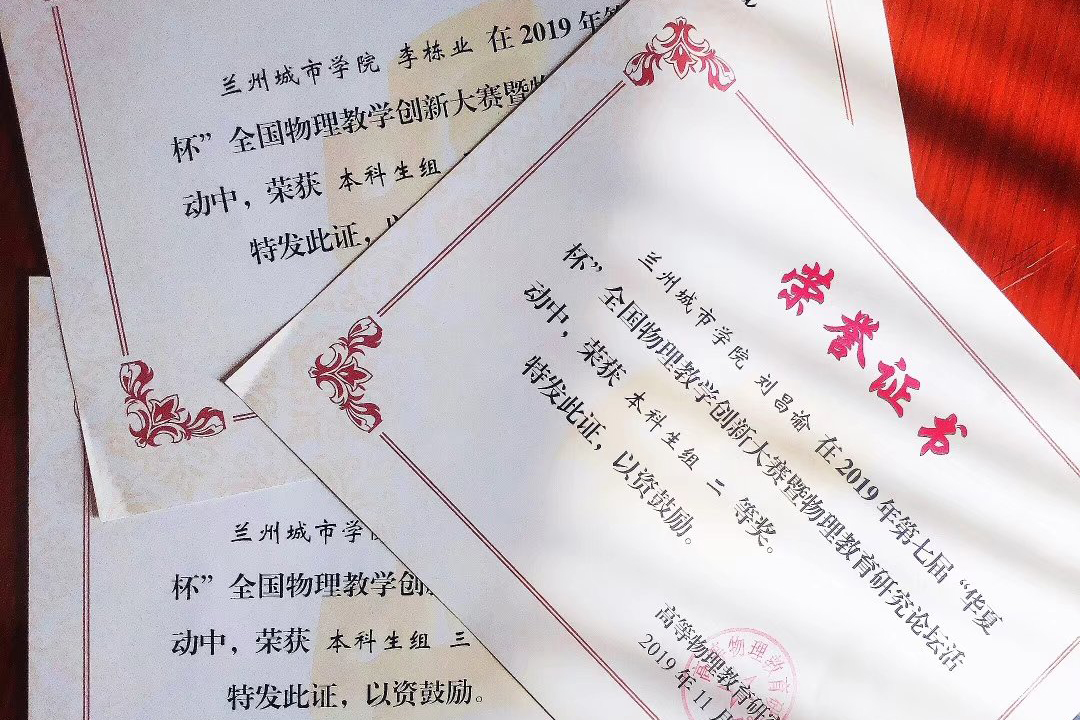 兰州城市学院 李栋业 在2019年第
杯”全国物理教学创新大赛暨物
动中，荣获 本科生组
特发此证，
荣誉证书
兰州城市学院 刘昌谕 在2019年第七届“华夏
杯”全国物理教学创新大赛暨物理教育研究论坛活
动中，荣获 本科生组 二 等奖。
特发此证，以资鼓励。
高等物理教育研究
2019年11月
物理教育
兰州城市学
杯”全国物理教学创
动中，荣获 本科生组 三
特发此证，以资鼓励。